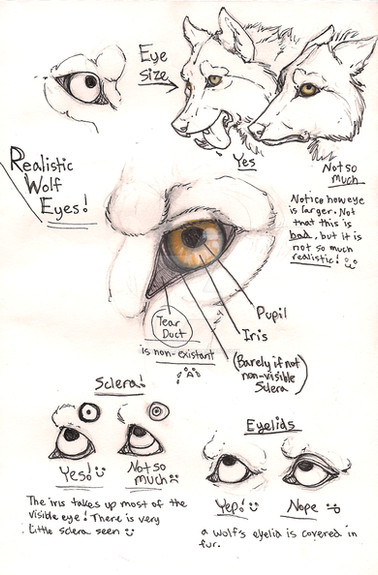 Eye
size
Yes
Not so
much
Notice how eye
is larger. Not
that this is
bad, but it is
not so much
realistic!
Realistic
Wolf
Eyes!
Pupil
Iris
(Barely if not
non-visible
Sclera)
Tear
Duct
is non-existant
Sclera!
Yes!
Not so
much
The iris takes up most of the
visible eye! There is very
little sclera seen
Eyelids
Yep!
Nope
a wolf's eyelid is covered in
fur.